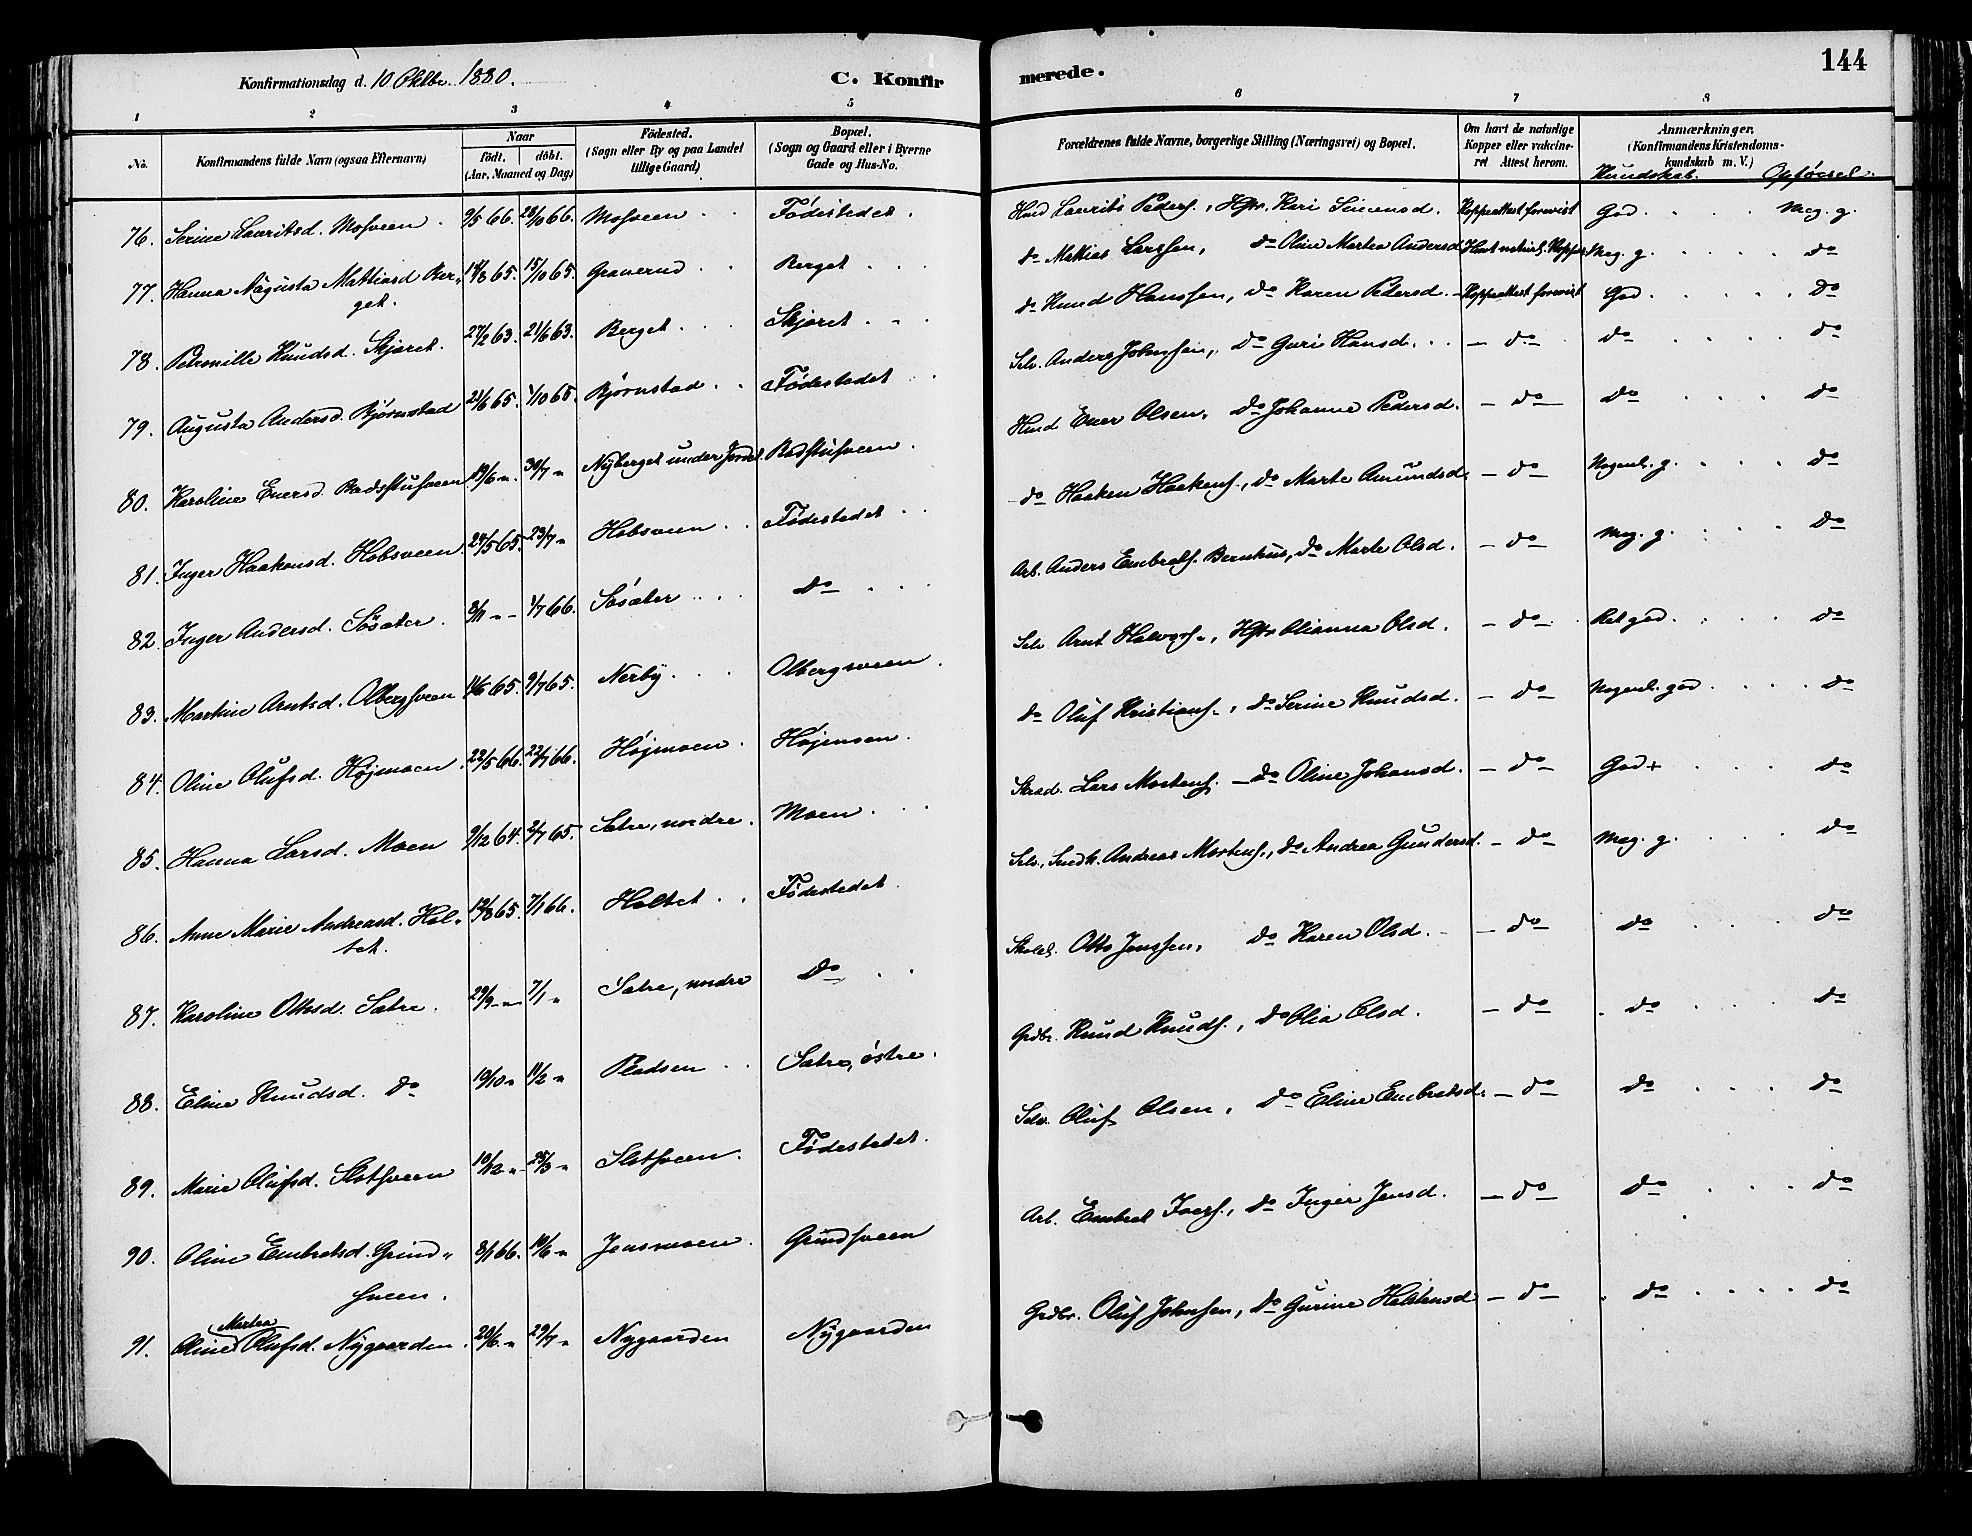 Konfirmationsdag d. 10 Oktbr. 1880.
C. Konfir
merede.
144
1 2 3 4 5 6 7 8
No.
Konfirmandens fulde Navn (ogsaa Efternavn)
Naar
födt. döbt.
(Aar, Maaned og Dag)
Födested.
(Sogn eller By og paa Landet
tillige Gaard)
Bopæl.
(Sogn og Gaard eller i Byerne
Gade og Hus-No.
Forældrenes fulde Navne, borgerlige Stilling (Næringsvei) og Bopæl.
Om havt de naturlige
Kopper eller vakcine-
ret Attest herom.
Anmærkninger.
(Konfirmandens Kristendoms-
kundskab m. V.)
Kundskab. Opførsel.
76. Serine Lauritsd. Mosveen. 9/5 66. 28/10 66. Mosveen Fødestedet. Husd Laurits Peders., Hstr. Kari Simensd. Koppeattest forevist God. Meg. g.
77. Hanna Augusta Mathiasd Ber-
get. 14/8 65. 15/10 65. Graverud Berget do Matias Larssen, do Oline Martea Andersd Havt naturl. Kopper Meg. g. do
78. Pernille Knudsd. Skjøret. 27/2 63. 21/6 63. Berget Skjøret do Knud Hanssen, do Karen Pedersd. Koppeattest forevist God do
79. Augusta Andersd. Bjørnstad 21/6 65. 1/10 65. Bjørnstad Fødestedet Selv. Anders Johnssen, do Guri Hansd. do do do
80. Karoline Eversd. Badstusveen 19/6 " 30/7 " Nyberget under Jordet Badstusveen. Husd Ever Olsen, do Johanne Pedersd. do do do
81. Inger Haakensd. Hobsveen 24/5 65. 23/7 " Hobsveen Fødestedet do Haaken Haakens., do Marte Amundsd. do Nogenl. g. do
82. Inger Andersd. Søsæter. 8/11 " 1/7 66. Søsæter do Arb. Anders Embrets. Bernhus, do Marte Olsd. do Meg. g. do
83. Martine Arntsd. Olbergsveen 11/6 65. 9/7 65. Nerby Olbergsveen. Selv. Arnt Halvors., Hstr Olianna Olsd. do Ret god. do
84. Oline Olufsd. Højmoen. 22/5 66. 22/7 66. Højmoen Højmoen. do Oluf Kristians., do Serine Knudsd. do Nogenl. god do
85. Hanna Larsd. Moen 9/12 64. 2/7 65. Sætre, nordre. Moen. Skræd. Lars Mortens. do Oline Johansd. do God+ do
86. Anne Marie Andreasd. Hol-
tet. 12/8 65. 7/1 66. Holtet Fødestedet. Selv. Smdh. Andreas Mortens., do Andrea Gundersd. do Meg. g. do
87. Karoline Ottosd. Sætre. 29/9 " 7/1 " Sætre, nordre do Otto Jenssen, do Karen Olsd. do do do
88. Eline Knudsd. do 19/10 " 11/2 " Pladsen Sætre, østre. Grdbr. Knud Knuds., do Olia Olsd. do do do
89. Marie Olufsd. Slotsveen 10/12 " 25/3 " Slotsveen. Fødestedet. Selv. Oluf Olsen, do Eline Embretsd. do do do
90. Oline Embretsd. Grind-
sveen. 8/1 66. 10/6 " Jensmoen. Grindsveen Arb. Embret Ivers., do Inger Jensd. do do do
91. Oline Martea Olufsd. Nygaarden. 20/6 " 29/7 " Nygaarden Nygaarden Grdbr. Oluf Johnsen, do Gurine Halstensd do do do